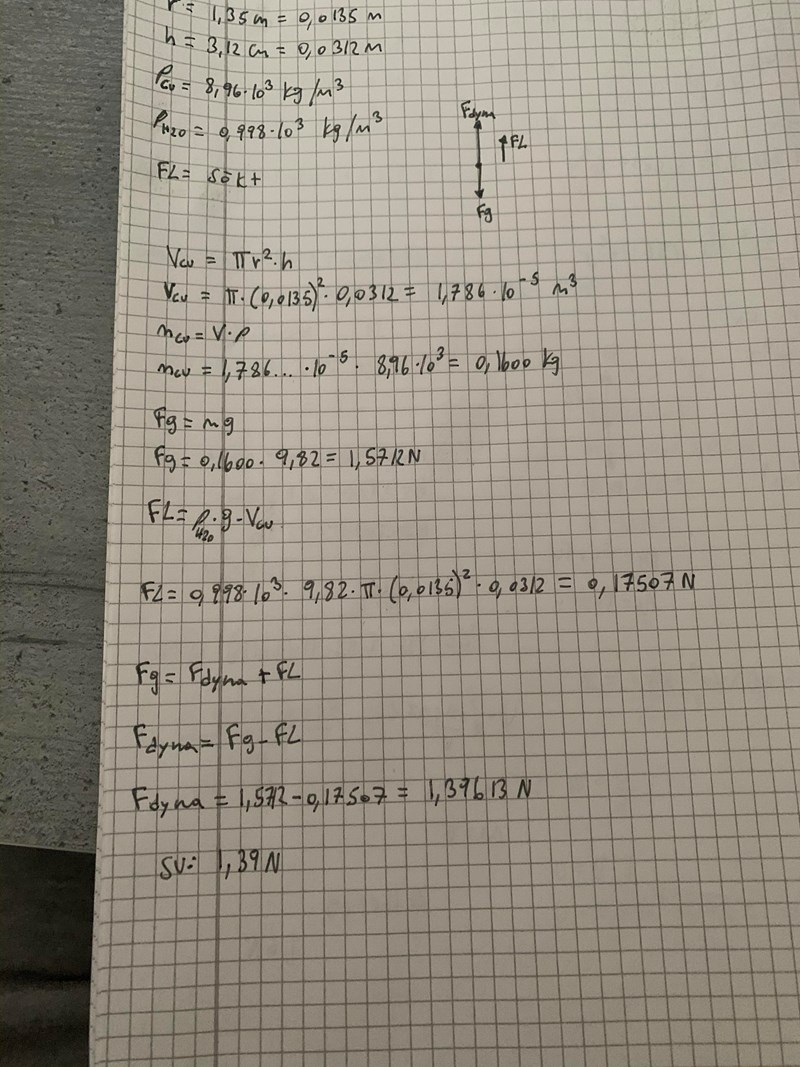 r = 1,35 cm = 0,0135 m
h = 3,12 cm = 0,0312 m
ρcu = 8,96·10³ kg/m³
ρH2O = 0,998·10³ kg/m³
FL = sökt
Fdyna
FL
Fg
Vcu = πr²·h
Vcu = π·(0,0135)²·0,0312 = 1,786·10⁻⁵ m³
mcu = V·ρ
mcu = 1,786...·10⁻⁵ · 8,96·10³ = 0,1600 kg
Fg = mg
Fg = 0,1600 · 9,82 = 1,5712 N
FL = ρH2O·g·Vcu
FL = 0,998·10³ · 9,82·π·(0,0135)²·0,0312 = 0,17507 N
Fg = Fdyna + FL
Fdyna = Fg - FL
Fdyna = 1,5712 - 0,17507 = 1,39613 N
SV: 1,39 N